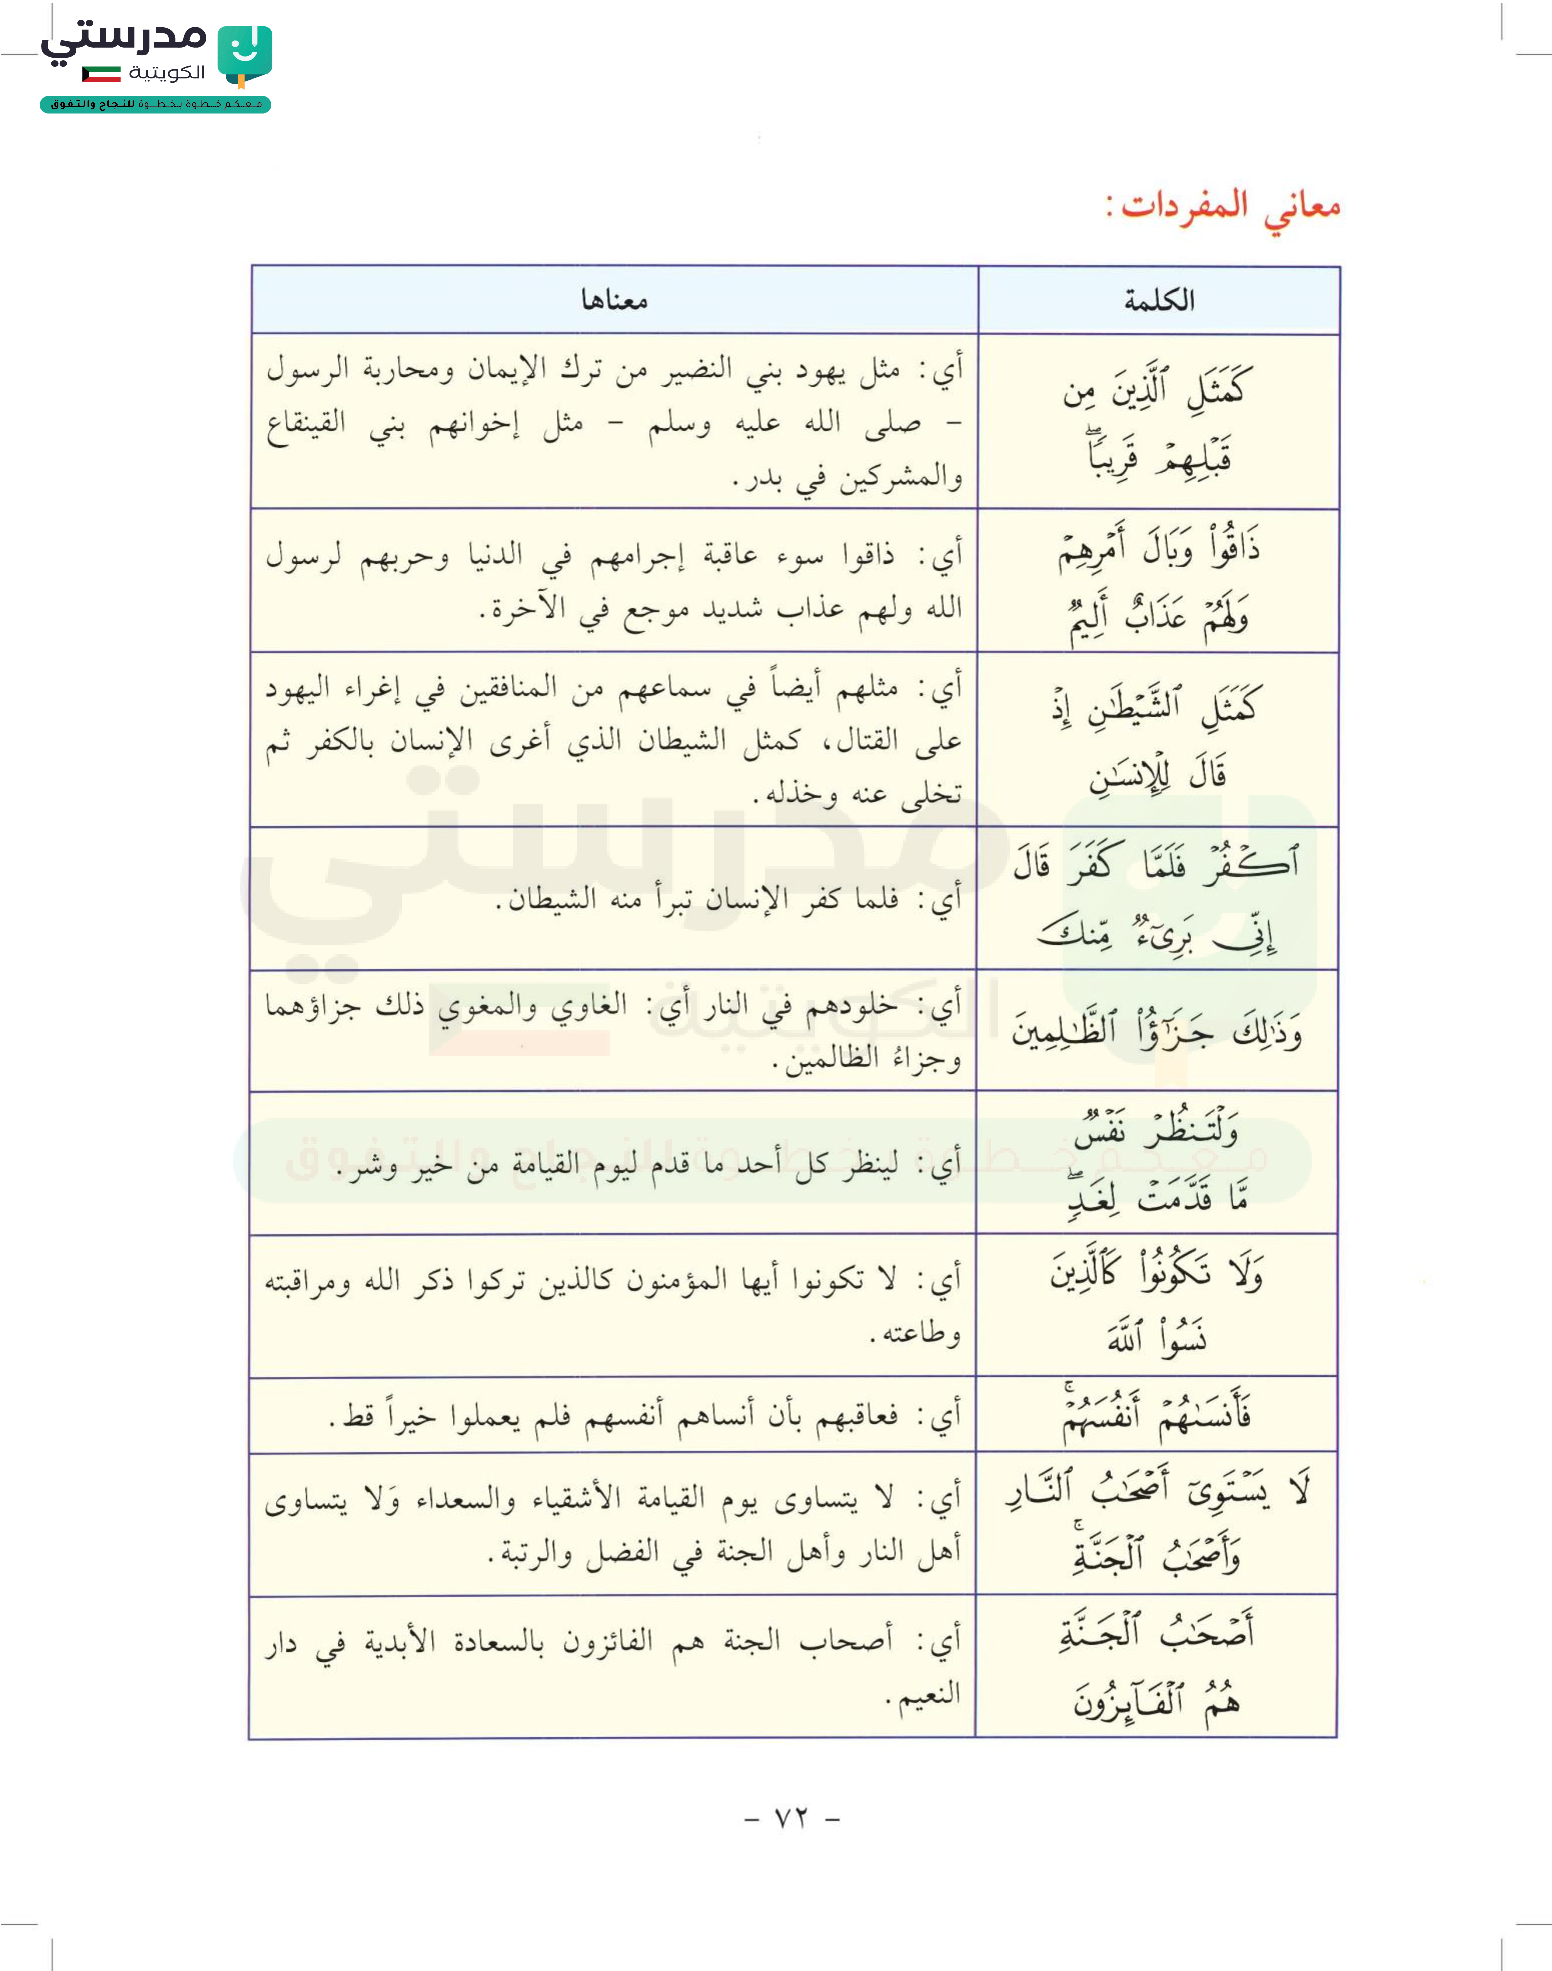 مدرستي
الكويتية
معكم خطوة بخطوة للنجاح والتفوق
معاني المفردات:
الكلمة
معناها
كَمَثَلِ ٱلَّذِينَ مِن
قَبْلِهِمْ قَرِيبًاۖ
أي: مثل يهود بني النضير من ترك الإيمان ومحاربة الرسول
– صلى الله عليه وسلم – مثل إخوانهم بني القينقاع
والمشركين في بدر.
ذَاقُواْ وَبَالَ أَمْرِهِمْ
وَلَهُمْ عَذَابٌ أَلِيمٌ
أي: ذاقوا سوء عاقبة إجرامهم في الدنيا وحربهم لرسول
الله ولهم عذاب شديد موجع في الآخرة.
كَمَثَلِ ٱلشَّيْطَٰنِ إِذْ
قَالَ لِلْإِنسَٰنِ
أي: مثلهم أيضاً في سماعهم من المنافقين في إغراء اليهود
على القتال، كمثل الشيطان الذي أغرى الإنسان بالكفر ثم
تخلى عنه وخذله.
ٱكْفُرْ فَلَمَّا كَفَرَ قَالَ
إِنِّى بَرِىٓءٌ مِّنكَ
أي: فلما كفر الإنسان تبرأ منه الشيطان.
وَذَٰلِكَ جَزَٰٓؤُاْ ٱلظَّٰلِمِينَ
أي: خلودهم في النار أي: الغاوي والمغوي ذلك جزاؤهما
وجزاءُ الظالمين.
وَلْتَنظُرْ نَفْسٌ
مَّا قَدَّمَتْ لِغَدٍۖ
أي: لينظر كل أحد ما قدم ليوم القيامة من خير وشر.
وَلَا تَكُونُواْ كَٱلَّذِينَ
نَسُواْ ٱللَّهَ
أي: لا تكونوا أيها المؤمنون كالذين تركوا ذكر الله ومراقبته
وطاعته.
فَأَنسَىٰهُمْ أَنفُسَهُمْۚ
أي: فعاقبهم بأن أنساهم أنفسهم فلم يعملوا خيراً قط.
لَا يَسْتَوِىٓ أَصْحَٰبُ ٱلنَّارِ
وَأَصْحَٰبُ ٱلْجَنَّةِۚ
أي: لا يتساوى يوم القيامة الأشقياء والسعداء وَلا يتساوى
أهل النار وأهل الجنة في الفضل والرتبة.
أَصْحَٰبُ ٱلْجَنَّةِ
هُمُ ٱلْفَآئِزُونَ
أي: أصحاب الجنة هم الفائزون بالسعادة الأبدية في دار
النعيم.
– ٧٢ –